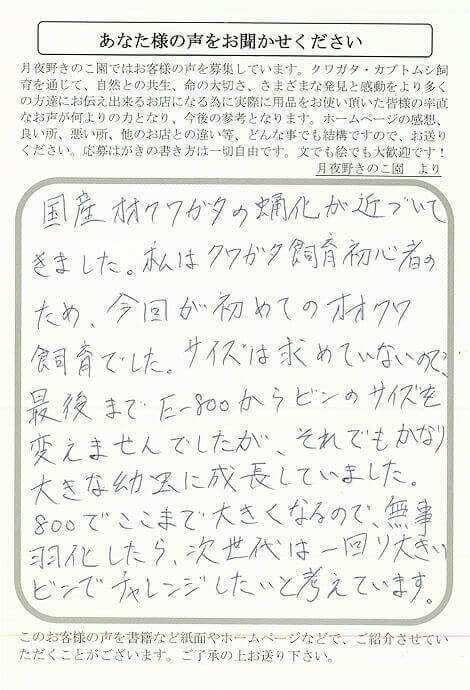 あなた様の声をお聞かせください
月夜野きのこ園ではお客様の声を募集しています。クワガタ・カブトムシ飼
育を通じて、自然との共生、命の大切さ、さまざまな発見と感動をより多く
の方達にお伝え出来るお店になる為に実際に用品をお使い頂いた皆様の率直
なお声が何よりの力となり、今後の参考となります。ホームページの感想、
良い所、悪い所、他のお店との違い等、どんな事でも結構ですので、お送り
ください。応募はがきの書き方は一切自由です。文でも絵でも大歓迎です！
月夜野きのこ園　より
国産オオクワガタの蛹化が近づいて
きました。私はクワガタ飼育初心者の
ため、今回が初めてのオオクワ
飼育でした。サイズは求めていないので、
最後までE-800からビンのサイズを
変えませんでしたが、それでもかなり
大きな幼虫に成長していました。
800でここまで大きくなるので、無事
羽化したら、次世代は一回り大きい
ビンでチャレンジしたいと考えています。
このお客様の声を書籍など紙面やホームページなどで、ご紹介させてい
ただくことがございます。ご了承の上お送り下さい。